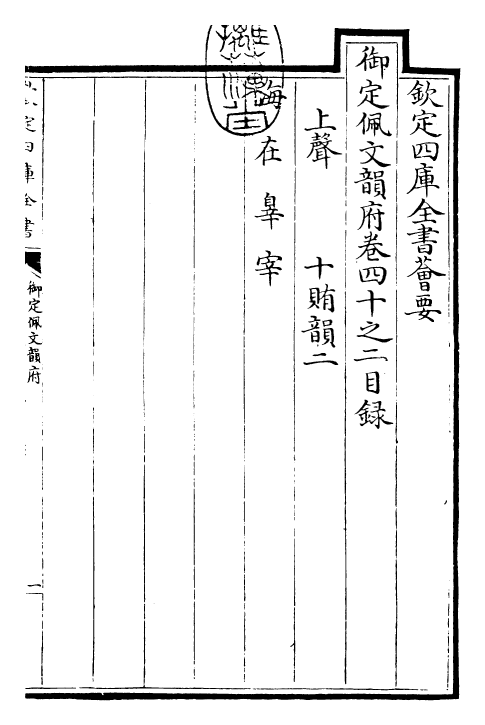 欽定四庫全書薈要
御定佩文韻府卷四十之二目録
上聲
十賄韻二
海
在
辠
宰
定四庫全書
御定佩文韻府
一